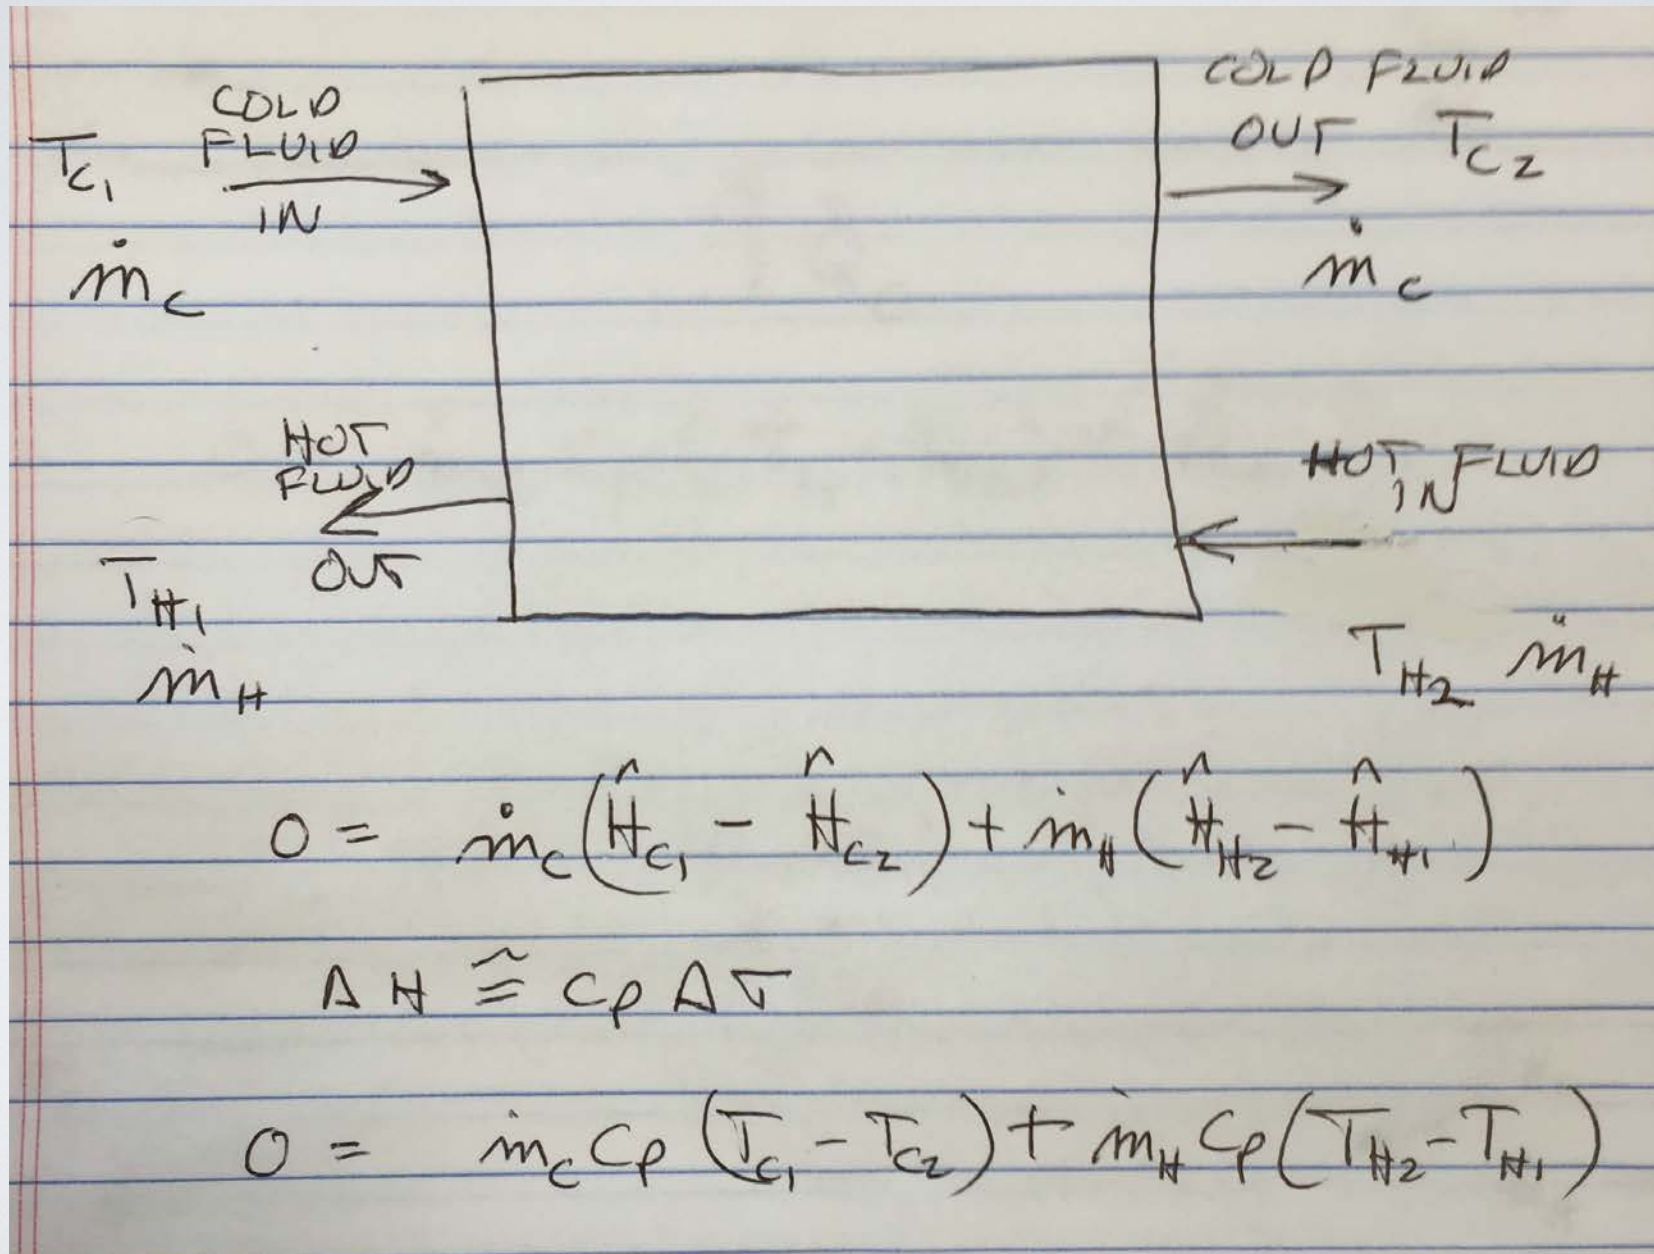 COLD
FLUID
IN
T_C1
ṁ_C
COLD FLUID
OUT T_C2
ṁ_C
HOT
FLUID
OUT
T_H1
ṁ_H
HOT FLUID
IN
T_H2 ṁ_H
0 = ṁ_C(Ĥ_C1 - Ĥ_C2) + ṁ_H(Ĥ_H2 - Ĥ_H1)
ΔH ≅ Cp ΔT
0 = ṁ_C Cp (T_C1 - T_C2) + ṁ_H Cp (T_H2 - T_H1)